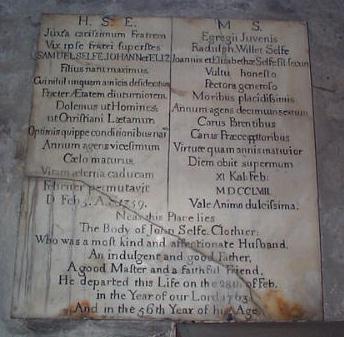 H. S. E.
Juxta carissimum Fratrem
Vix ipse fratri superstes
SAMUEL SELFE, JOHAN. et ELIZ.
Filius natu maximus
Cui nihil unquam amicis defidectus
Præter Ætatem diuturniorem.
Dolemus ut Homines
ut Christiani Lætamur.
Optimis quippe conditionibus
Annum agens vicesimum
Cælo maturus
Vitam æterna caducam
Feliciter permutavit
D. Feb. 5. A.S. 1759.
M S.
Egregii Juvenis
Radulph. Willet Selfe
Joannis et Elizabethæ Selfe fil. secun
Vultu honesto
Pectore generoso
Moribus placidissimis
Annum agens decimum sextum
Carus Parentibus
Carus Præceptoribus
Virtute quam annis maturior
Diem obiit supermum
XI Kal: Feb:
MDCCLVIII.
Vale Anima dulcissima.
Near this Place lies
The Body of John Selfe Clothier:
Who was a most kind and affectionate Husband.
An indulgent and good Father,
A good Master and a faithful Friend.
He departed this Life on the 28th of Feb.
in the Year of our Lord 1763.
And in the 56th Year of his Age.